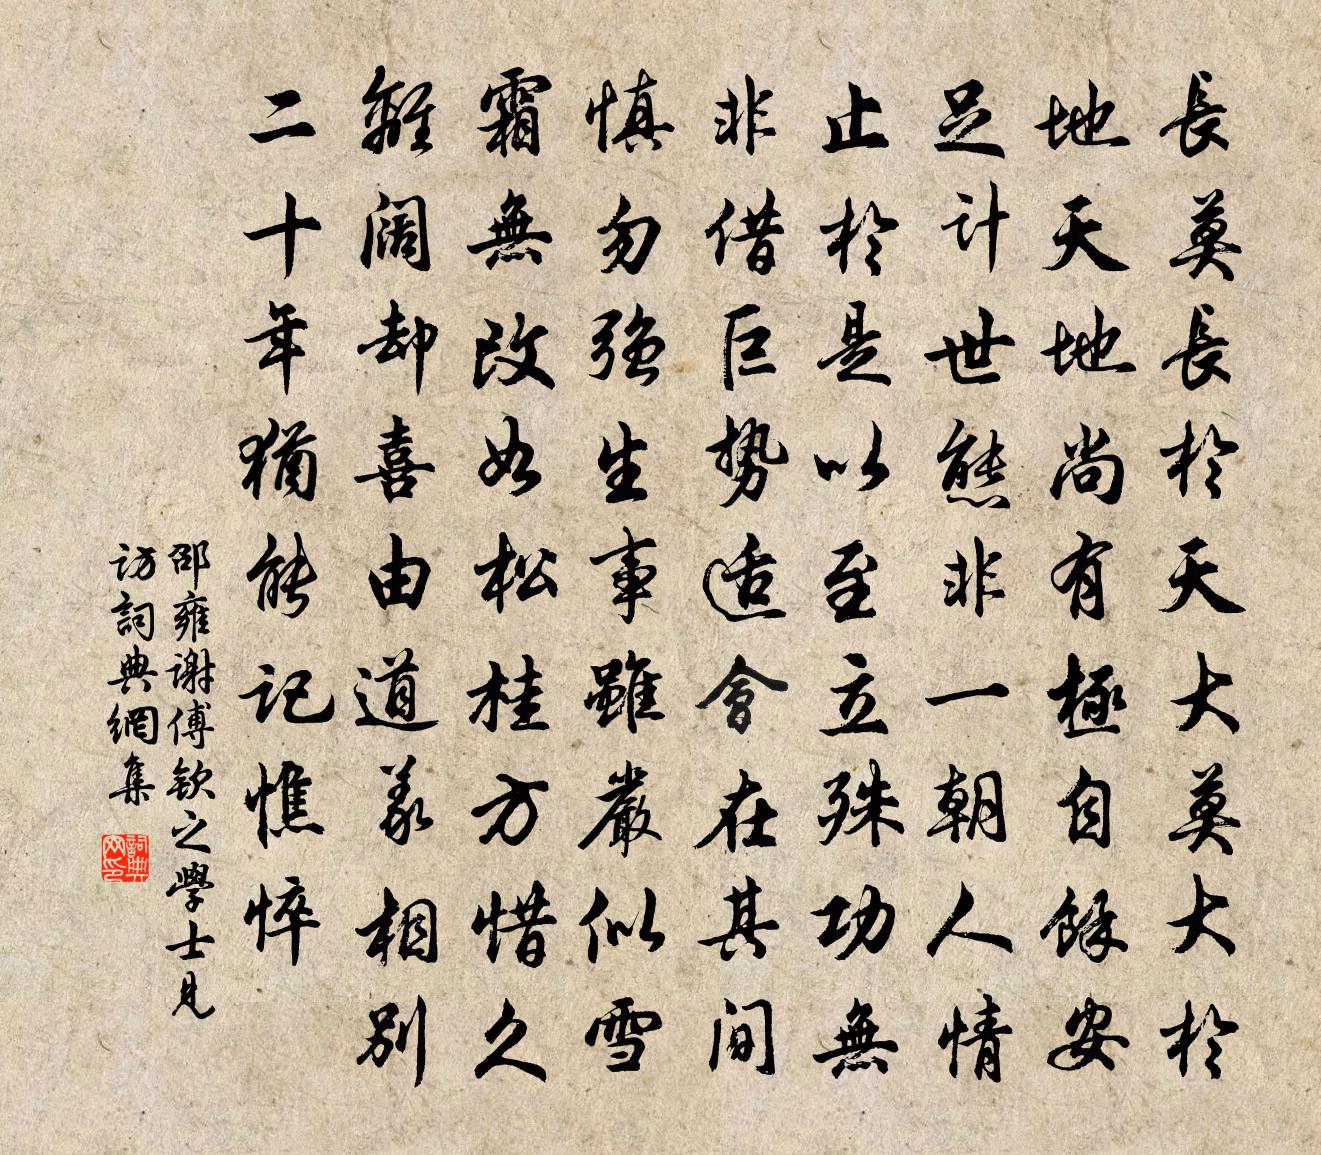 長莫長於天大莫大於
地天地尚有極自餘安
足計世態非一朝人情
止於是以至立殊功無
非借巨勢适會在其間
慎勿強生事雖嚴似雪
霜無改如松桂方惜久
離闊却喜由道義相別
二十年猶能記憔悴
邵雍謝傅欽之學士見
訪詞典網集